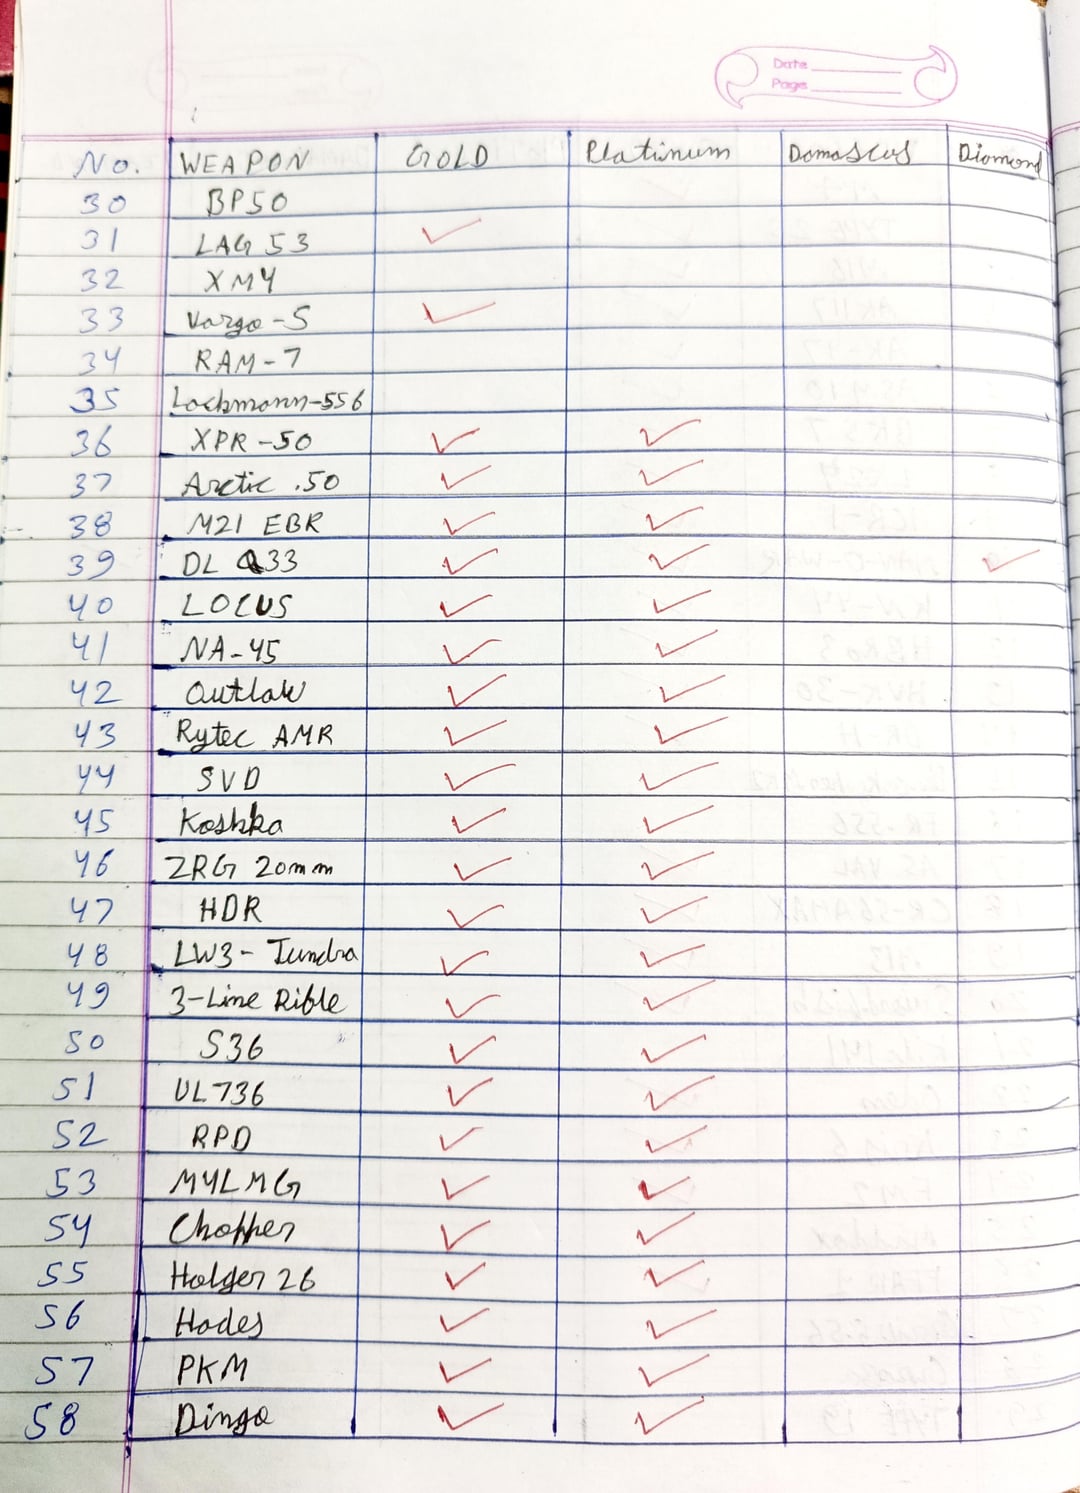 Date
Page
No. WEAPON GOLD Platinum Damascus Diamond
30 BP50
31 LAG 53 ✓
32 XM4
33 Vargo-S ✓
34 RAM-7
35 Lachmann-556
36 XPR-50 ✓ ✓
37 Arctic .50 ✓ ✓
38 M21 EBR ✓ ✓
39 DL Q33 ✓ ✓ ✓
40 LOCUS ✓ ✓
41 NA-45 ✓ ✓
42 Outlaw ✓ ✓
43 Rytec AMR ✓ ✓
44 SVD ✓ ✓
45 Koshka ✓ ✓
46 ZRG 20mm ✓ ✓
47 HDR ✓ ✓
48 LW3-Tundra ✓ ✓
49 3-Line Rifle ✓ ✓
50 S36 ✓ ✓
51 UL736 ✓ ✓
52 RPD ✓ ✓
53 M4LMG ✓ ✓
54 Chopper ✓ ✓
55 Holger 26 ✓ ✓
56 Hades ✓ ✓
57 PKM ✓ ✓
58 Dingo ✓ ✓